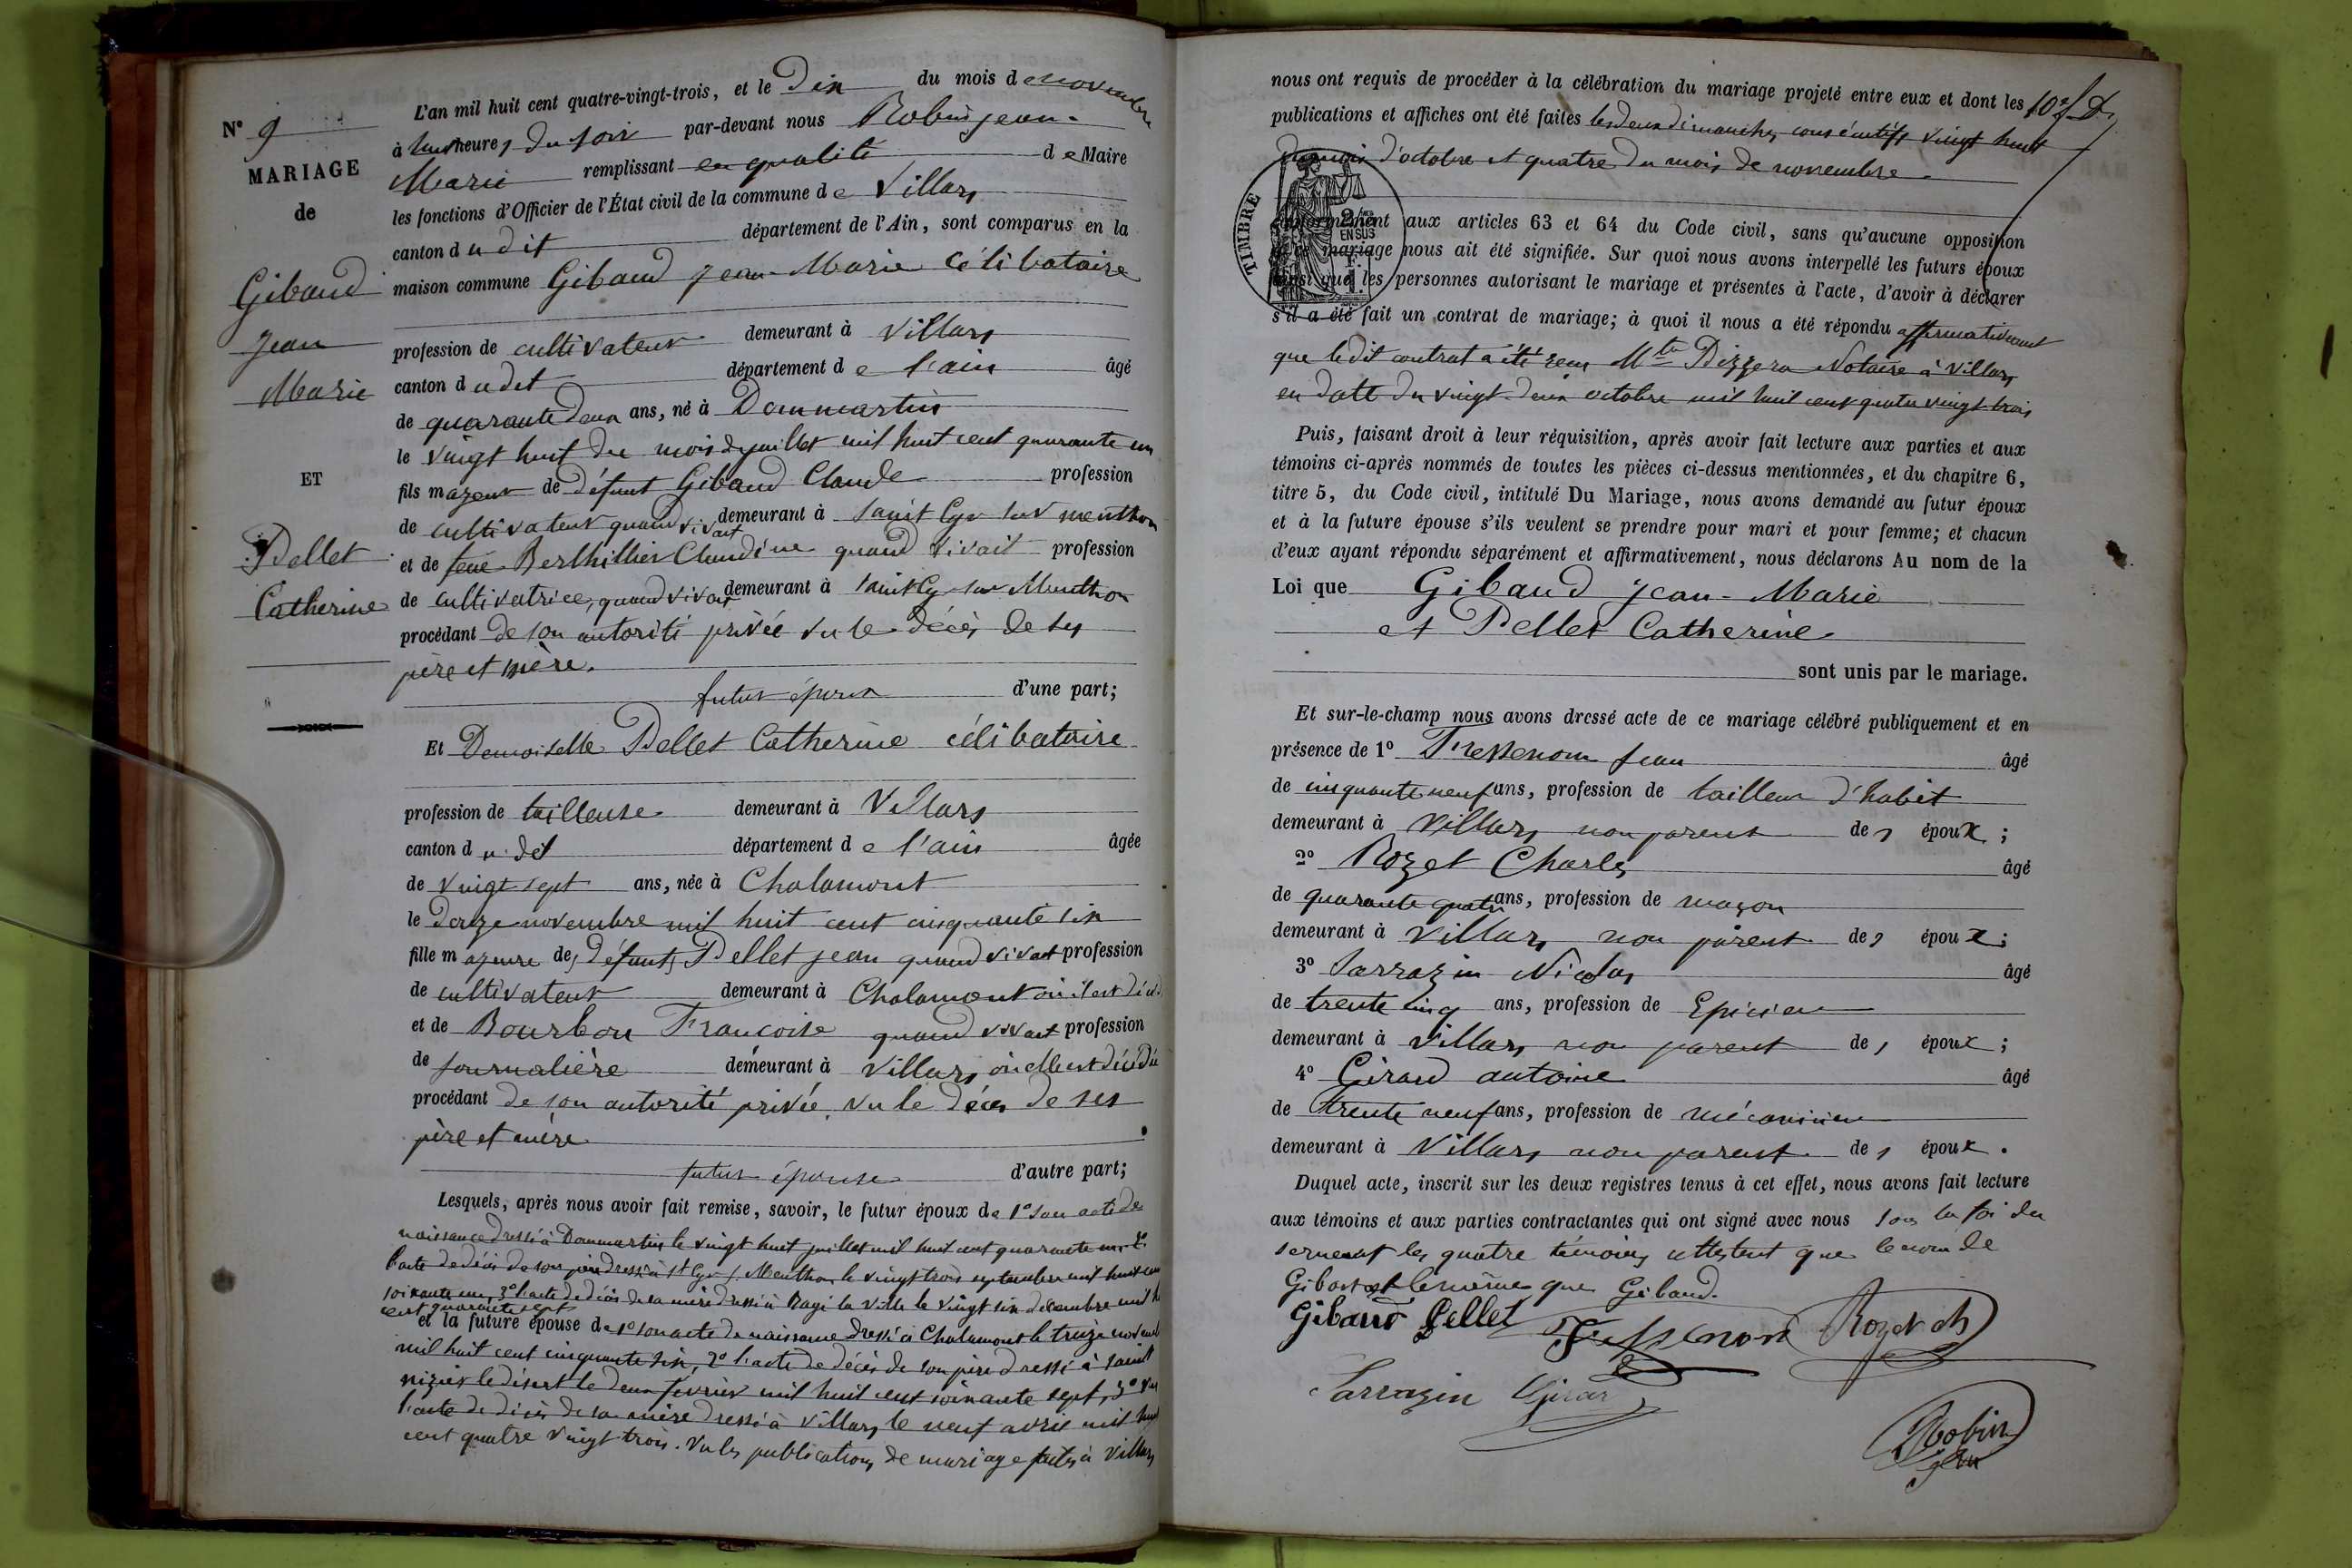 N° 9
MARIAGE
de
Gibaud
Jean
Marie
ET
Pellet
Catherine
L'an mil huit cent quatre-vingt-trois, et le Dix du mois de novembre
à heures du soir par-devant nous Robin jean-
Marie remplissant en qualité de Maire
les fonctions d'Officier de l'État civil de la commune de Villars
canton du dit département de l'Ain, sont comparus en la
maison commune Gibaud Jean-Marie Célibataire
profession de cultivateur demeurant à Villars
canton du dit département de l'ain âgé
de quarante deux ans, né à Dommartin
le vingt huit du mois de juillet mil huit cent quarante un
fils majeur de défunt Gibaud Claude profession
de cultivateur quand vivait demeurant à saint Cyr sur menthon
et de feue Berthillier Claudine quand vivait profession
de cultivatrice, quand vivait demeurant à saint Cyr sur Menthon
procédant de son autorité privée vu le décès de ses
père et mère.
futur époux d'une part;
Et Demoiselle Pellet Catherine célibataire
profession de tailleuse demeurant à Villars
canton du dit département de l'ain âgée
de vingt sept ans, née à Chalamont
le novembre mil huit cent cinquante six
fille majeure des défunts Pellet jean quand vivait profession
de cultivateur demeurant à Chalamont où il est décédé
et de Bourbon Francoise quand vivait profession
de journalière demeurant à Villars où elle est décédée
procédant de son autorité privée, vu le décès de ses
père et mère
futur épouse d'autre part;
Lesquels, après nous avoir fait remise, savoir, le futur époux de 1° son acte de
naissance dressé à Dommartin le vingt huit juillet mil huit cent quarante un, 2°
l'acte de décès de son père dressé à St Cyr s. Menthon le vingt trois septembre mil huit cent
soixante un, 3° l'acte de décès de sa mère dressé à Bagé la Ville le vingt six décembre mil huit
cent quarante sept
et la future épouse de 1° son acte de naissance dressé à Chalamont le treize novembre
mil huit cent cinquante six, 2° l'acte de décès de son père dressé à saint
nizier le désert le deux février mil huit cent soixante sept, 3° vu
l'acte de décès de sa mère dressé à Villars le neuf avril mil huit
cent quatre vingt trois. Vu les publications de mariage faites à Villars
nous ont requis de procéder à la célébration du mariage projeté entre eux et dont les
publications et affiches ont été faites les deux dimanches consécutifs vingt huit
du mois d'octobre et quatre du mois de novembre
TIMBRE
2/10mes
EN SUS
conformément aux articles 63 et 64 du Code civil, sans qu'aucune opposition
à ce mariage nous ait été signifiée. Sur quoi nous avons interpellé les futurs époux
ainsi que les personnes autorisant le mariage et présentes à l'acte, d'avoir à déclarer
s'il a été fait un contrat de mariage; à quoi il nous a été répondu affirmativement
que le dit contrat a été reçu Mtre Notaire à Villars
en date du vingt-deux octobre mil huit cent quatre vingt trois
Puis, faisant droit à leur réquisition, après avoir fait lecture aux parties et aux
témoins ci-après nommés de toutes les pièces ci-dessus mentionnées, et du chapitre 6,
titre 5, du Code civil, intitulé Du Mariage, nous avons demandé au futur époux
et à la future épouse s'ils veulent se prendre pour mari et pour femme; et chacun
d'eux ayant répondu séparément et affirmativement, nous déclarons Au nom de la
Loi que Gibaud Jean-Marie
et Pellet Catherine
sont unis par le mariage.
Et sur-le-champ nous avons dressé acte de ce mariage célébré publiquement et en
présence de 1° Jean âgé
de cinquante neuf ans, profession de tailleur d'habit
demeurant à Villars non parent des époux;
2° Rozet Charles âgé
de quarante quatre ans, profession de maçon
demeurant à Villars non parent des époux;
3° Sarrazin Nicolas âgé
de trente cinq ans, profession de Epicier
demeurant à Villars non parent des époux;
4° Girard antoine âgé
de trente neuf ans, profession de mécanicien
demeurant à Villars non parent des époux.
Duquel acte, inscrit sur les deux registres tenus à cet effet, nous avons fait lecture
aux témoins et aux parties contractantes qui ont signé avec nous sous la foi du
serment les quatre témoins attestent que le nom de
est le même que Gibaud.
Gibaud Pellet Rozet ch
Sarrazin Girard
Robin